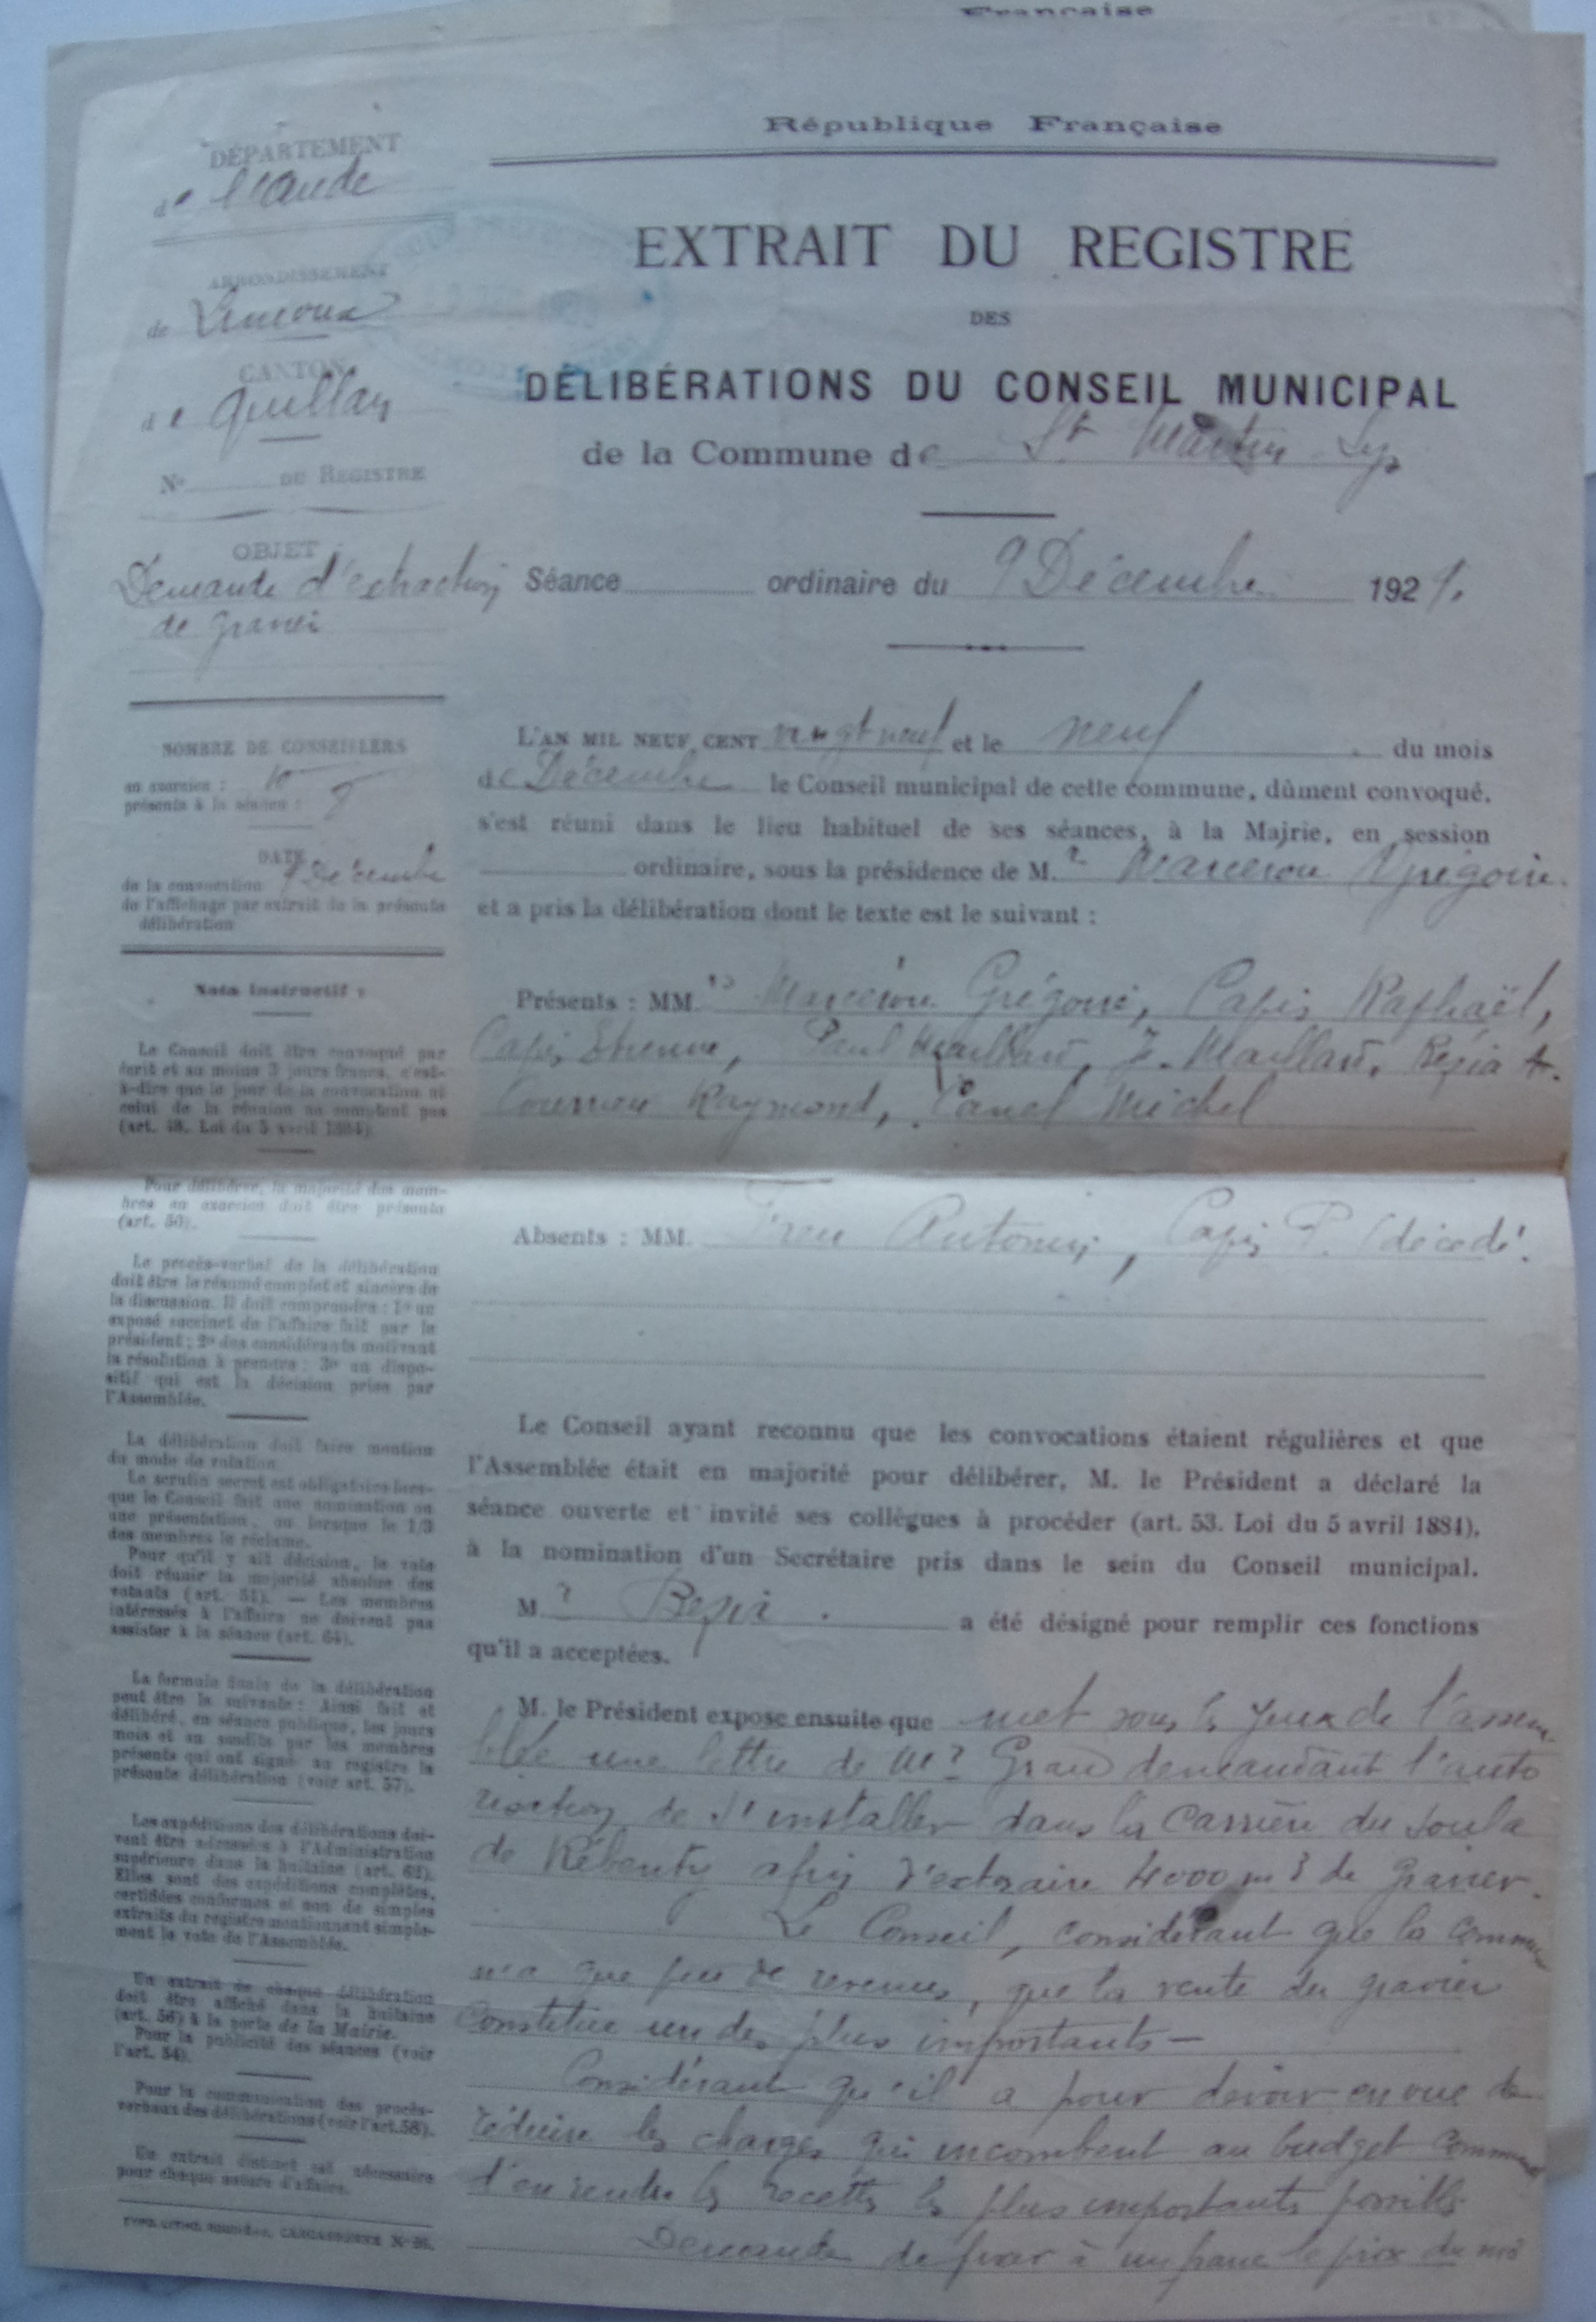 Française
République Française
DÉPARTEMENT
de l'Aude
ARRONDISSEMENT
de Limoux
CANTON
de Quillan
No DU REGISTRE
OBJET
Demande d'extraction
de gravier
EXTRAIT DU REGISTRE
DES
DÉLIBÉRATIONS DU CONSEIL MUNICIPAL
de la Commune de St Martin Lys
Séance ordinaire du 9 Décembre 1929.
NOMBRE DE CONSEILLERS
en exercice : 10
présents à la séance :
DATE
de la convocation Décembre
de l'affichage par extrait de la présente
délibération
Nota instructif :
Le Conseil doit être convoqué par
écrit et au moins 3 jours francs, c'est-
à-dire que le jour de la convocation et
celui de la réunion ne comptent pas
(art. 48. Loi du 5 avril 1884).
Pour délibérer, la majorité des mem-
bres en exercice doit être présente
(art. 50).
Le procès-verbal de la délibération
doit être le résumé complet et sincère de
la discussion. Il doit comprendre : 1o un
exposé succinct de l'affaire fait par le
président ; 2o des considérants motivant
la résolution à prendre ; 3o un dispo-
sitif qui est la décision prise par
l'Assemblée.
La délibération doit faire mention
du mode de votation.
Le scrutin secret est obligatoire lors-
que le Conseil fait une nomination ou
une présentation, ou lorsque le 1/3
des membres le réclame.
Pour qu'il y ait décision, le vote
doit réunir la majorité absolue des
votants (art. 51). — Les membres
intéressés à l'affaire ne doivent pas
assister à la séance (art. 64).
La formule finale de la délibération
peut être la suivante : Ainsi fait et
délibéré, en séance publique, les jours
mois et an susdits par les membres
présents qui ont signé au registre la
présente délibération (voir art. 57).
Les expéditions des délibérations doi-
vent être adressées à l'Administration
supérieure dans la huitaine (art. 62).
Elles sont des expéditions complètes,
certifiées conformes et non de simples
extraits du registre mentionnant simple-
ment le vote de l'Assemblée.
Un extrait de chaque délibération
doit être affiché dans la huitaine
(art. 56) à la porte de la Mairie.
Pour la publicité des séances (voir
l'art. 54).
Pour la communication des procès-
verbaux des délibérations (voir l'art. 58).
Un extrait distinct est nécessaire
pour chaque nature d'affaire.
CARCASSONNE
L'AN MIL NEUF CENT vingt neuf et le neuf du mois
de Décembre le Conseil municipal de cette commune, dûment convoqué,
s'est réuni dans le lieu habituel de ses séances, à la Majrie, en session
ordinaire, sous la présidence de M. r Marcerou Grégoire.
et a pris la délibération dont le texte est le suivant :
Présents : MM. rs Marcerou Grégoire, Capis Raphaël,
Capis Etienne, Paul Maillard, J. Maillard,
Raymond, Canel Michel
Absents : MM. Antonin, Capis P. (décédé).
Le Conseil ayant reconnu que les convocations étaient régulières et que
l'Assemblée était en majorité pour délibérer, M. le Président a déclaré la
séance ouverte et invité ses collègues à procéder (art. 53. Loi du 5 avril 1884),
à la nomination d'un Secrétaire pris dans le sein du Conseil municipal.
M r a été désigné pour remplir ces fonctions
qu'il a acceptées.
M. le Président expose ensuite que met sous les yeux de l'assem
blée une lettre de Mr Grau demandant l'auto
risation de s'installer dans la carrière du Soula
de Rébenty afin d'extraire 4000 m3 de gravier.
Le Conseil, considérant que la commune
n'a que peu de revenus, que la vente du gravier
constitue un des plus importants —
Considérant qu'il a pour devoir en vue de
réduire les charges qui incombent au budget communal
d'en rendre les recettes les plus importantes possible
Demande de fixer à un franc le prix du m3